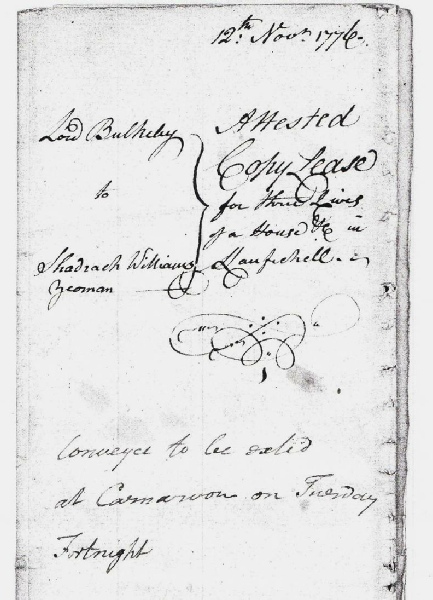 12th Novr. 1776.
Lord Bulkeley
to
Shadrach Williams
Yeoman
Attested
Copy Lease
for three Lives
of a House &c in
Llanfechell.
Conveyce to be exted
at Carnarvon on Tuesday
Fortnight